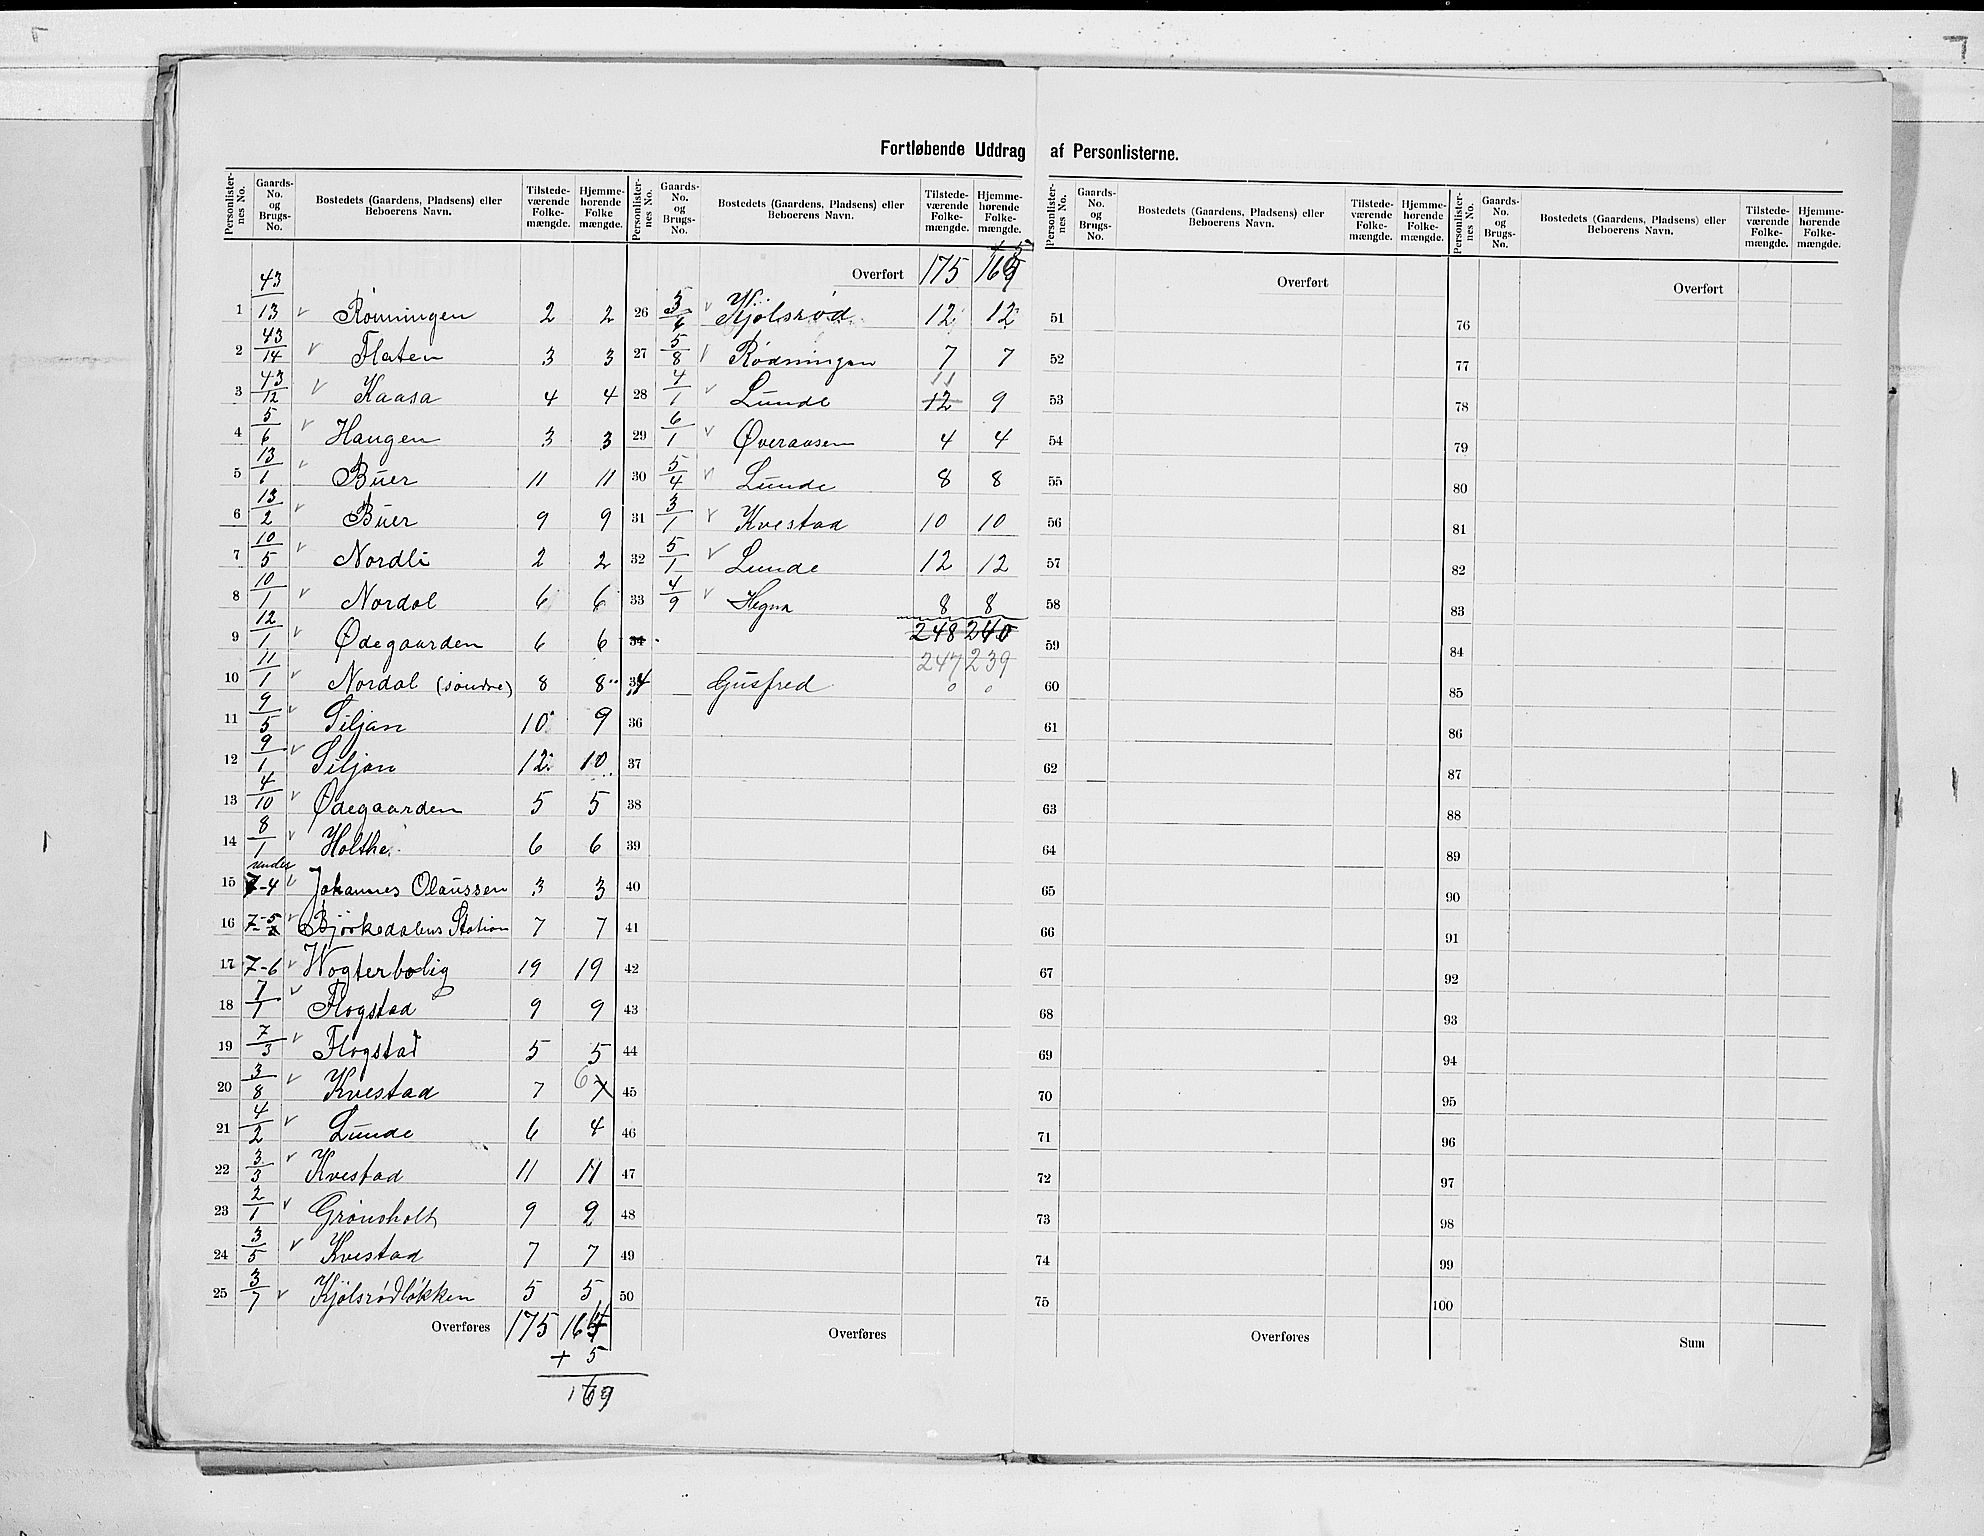 Fortløbende Uddrag af Personlisterne.
Personlister-nes No. Gaards-No. og Brugs-No. Bostedets (Gaardens, Pladsens) eller Beboerens Navn. Tilstede-værende Folke-mængde. Hjemme-hørende Folke mængde.
1 43/13 v Rönningen 2 2
2 43/14 v Flaten 3 3
3 43/12 v Kaasa 4 4
4 5/6 v Haugen 3 3
5 13/1 v Buer 11 11
6 13/2 v Buer 9 9
7 10/5 v Nordli 2 2
8 10/1 v Nordal 6 6
9 12/1 v Ødegaarden 6 6
10 11/1 v Nordal (søndre) 8 8
11 9/5 v Siljan 10 9
12 9/1 v Siljan 12 10
13 4/10 v Ødegaarden 5 5
14 8/1 v Holthe 6 6
15 7-4 v Johannes Olaussen 3 3
16 7-5 v Bjørkedalens Station 7 7
17 7-6 v Wogterbolig 19 19
18 7/1 v Flogstad 9 9
19 7/3 v Flogstad 5 5
20 3/8 v Kvestad 7 6 7
21 4/2 v Lunde 6 4
22 3/3 v Kvestad 11 11
23 2/1 v Grönsholt 9 9
24 3/5 v Kvestad 7 7
25 3/7 v Kjølsrødløkken 5 5
Overføres 175 164
+ 5
169
Personlister-nes No. Gaards-No. og Brugs-No. Bostedets (Gaardens, Pladsens) eller Beboerens Navn. Tilstede-værende Folke-mængde. Hjemme-hørende Folke-mængde.
Overført 175 169
26 3/6 v Kjölsrød 12 12
27 5/8 v Rödningen 7 7
28 4/1 v Lunde 11 12 9
29 6/1 v Øveraasen 4 4
30 5/4 v Lunde 8 8
31 3/1 v Kvestad 10 10
32 5/1 v Lunde 12 12
33 4/9 v Hegna 8 8
34 248 240
247 239
34 Gusfred 0 0
36
37
38
39
40
41
42
43
44
45
46
47
48
49
50
Overføres
Personlister-nes No. Gaards-No. og Brugs-No. Bostedets (Gaardens, Pladsens) eller Beboerens Navn. Tilstede-værende Folke-mængde. Hjemme-hørende Folke-mængde.
Overført
51
52
53
54
55
56
57
58
59
60
61
62
63
64
65
66
67
68
69
70
71
72
73
74
75
Overføres
Personlister-nes No. Gaards-No. og Brugs-No. Bostedets (Gaardens, Pladsens) eller Beboerens Navn. Tilstede-værende Folke-mængde. Hjemme-hørende Folke-mængde.
Overført
76
77
78
79
80
81
82
83
84
85
86
87
88
89
90
91
92
93
94
95
96
97
98
99
100
Sum